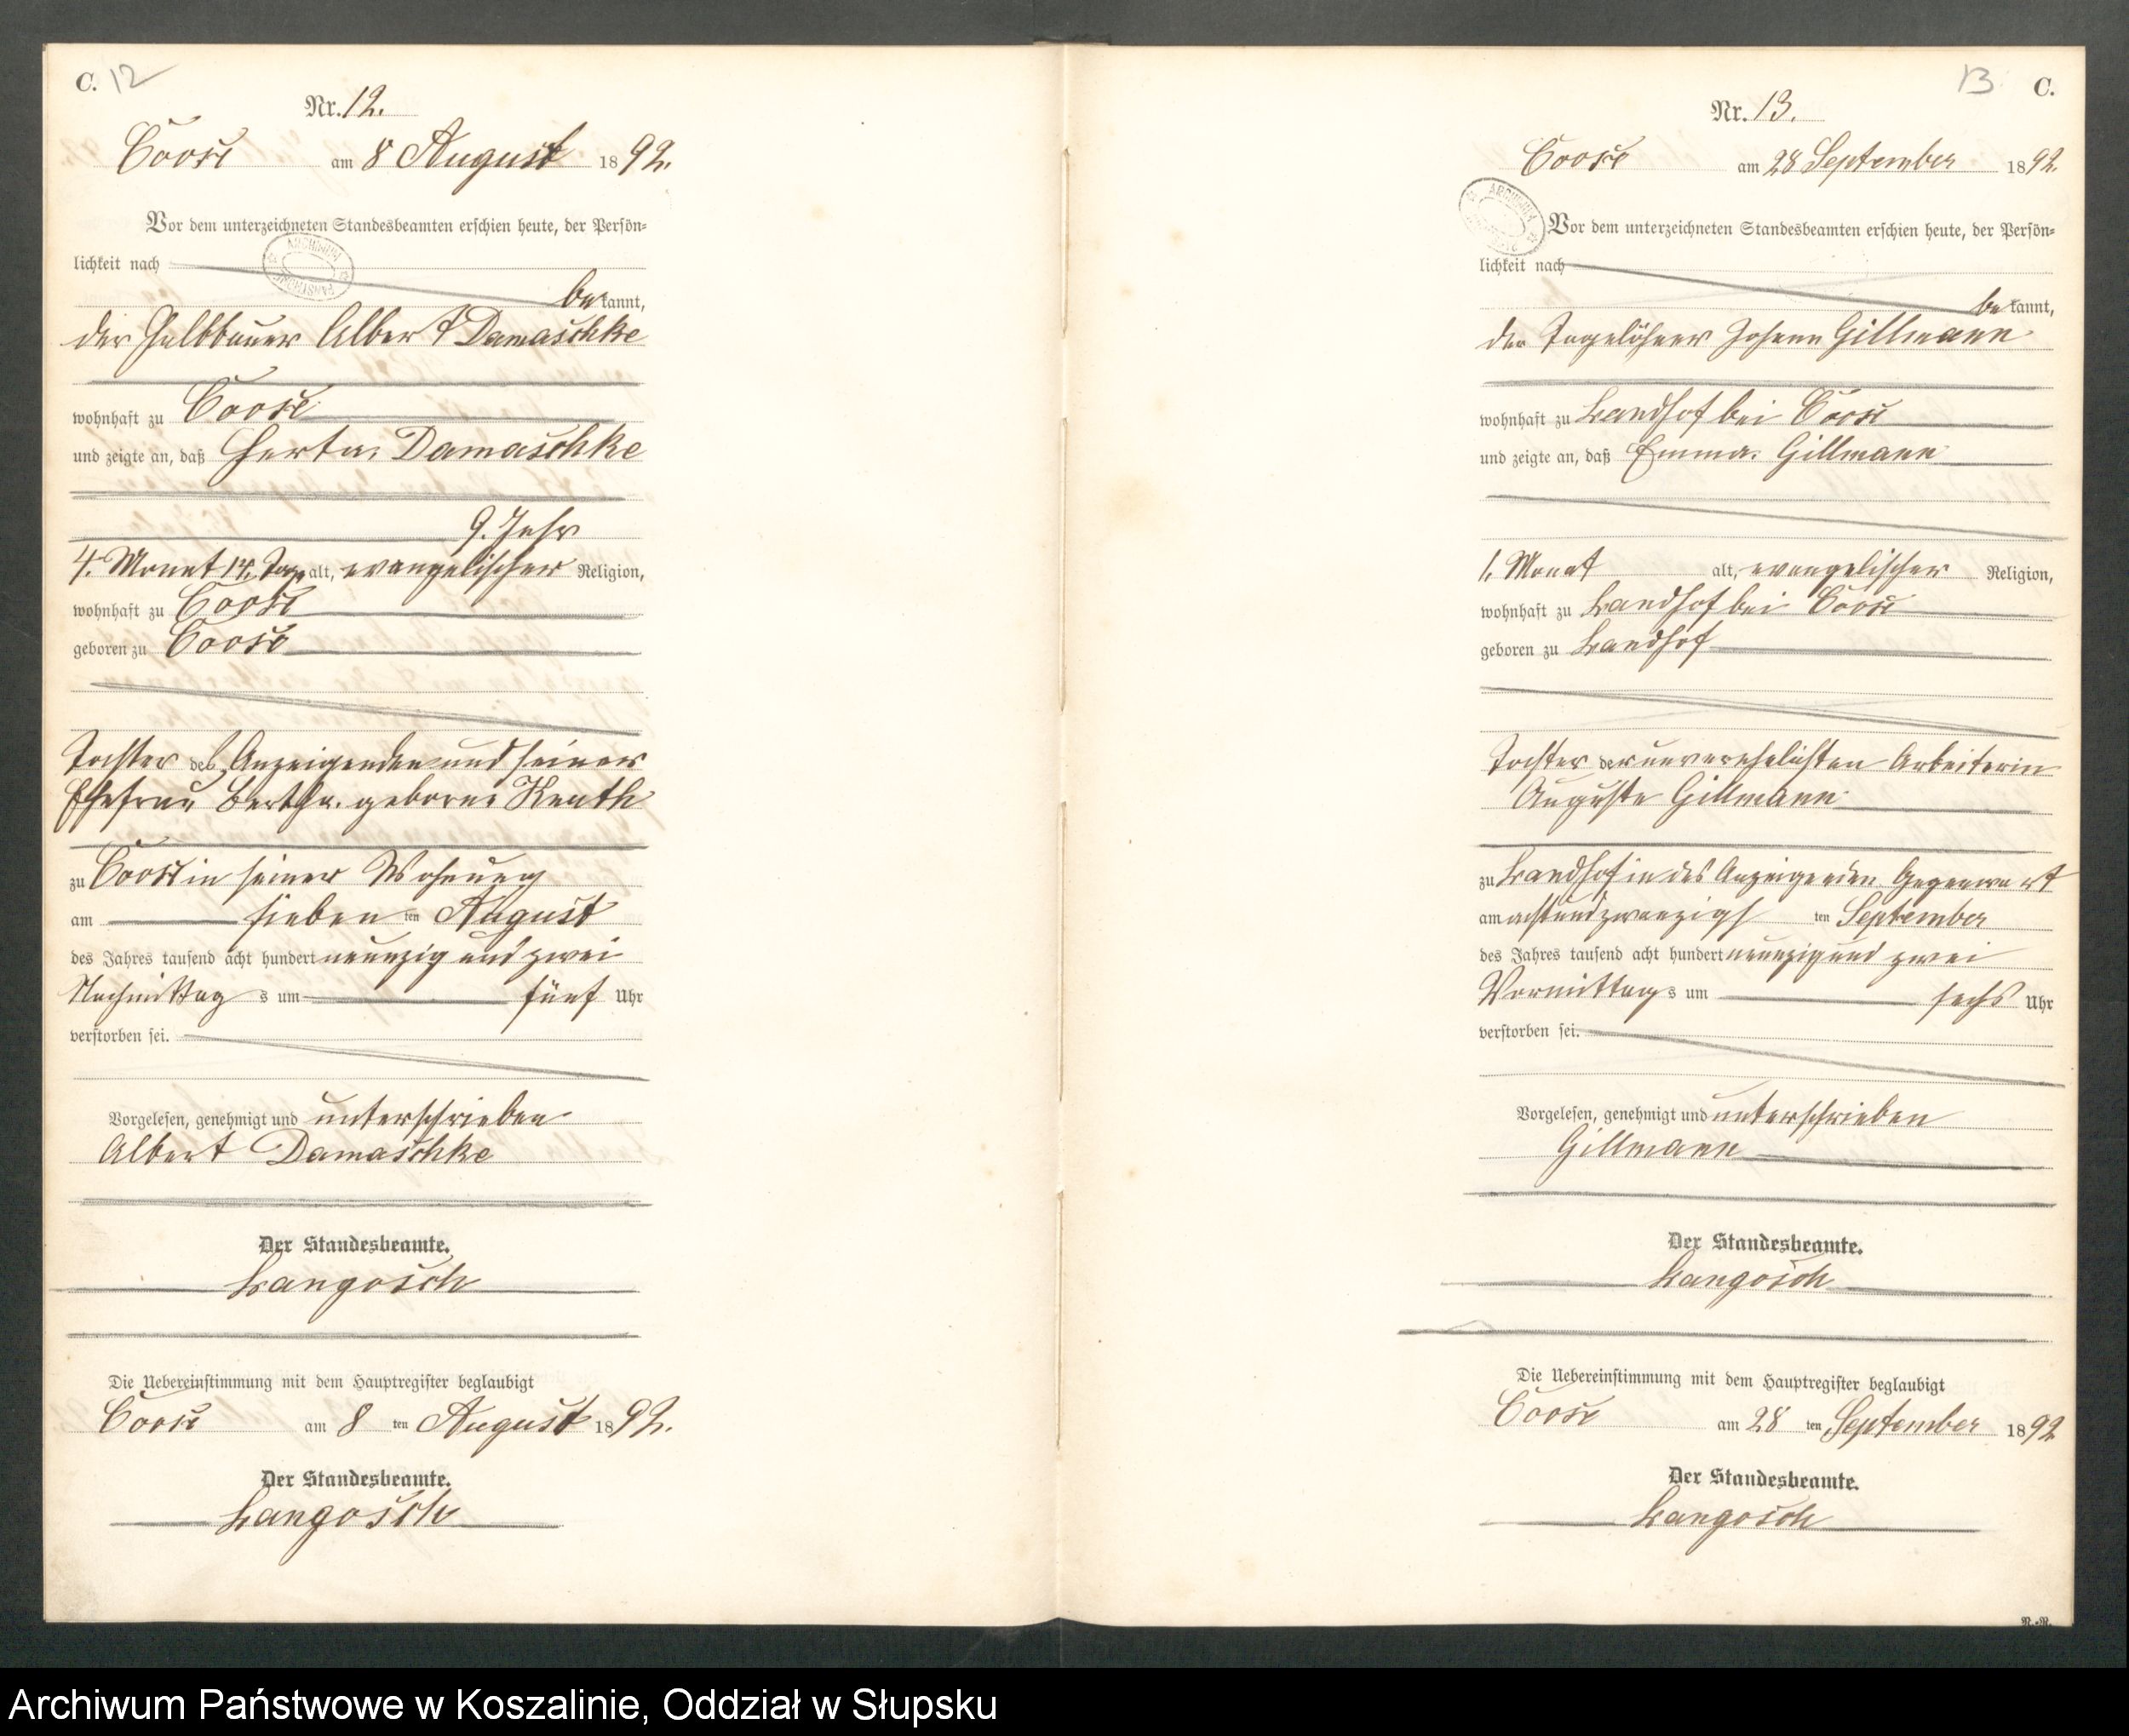 C. 12
Nr. 12.
Coose am 8 August 1892.
Vor dem unterzeichneten Standesbeamten erschien heute, der Persön-
lichkeit nach
bekannt,
der Halbbauer Albert Damaschke
wohnhaft zu Coose
und zeigte an, daß Herta Damaschke
9. Jahr
4. Monat 14. Tage alt, evangelischer Religion,
wohnhaft zu Coose
geboren zu Coose
Tochter des Anzeigenden und seiner
Ehefrau Bertha geborne
zu Coose in seiner Wohnung
am sieben ten August
des Jahres tausend acht hundert neunzig und zwei
Nachmittag s um fünf Uhr
verstorben sei.
Vorgelesen, genehmigt und unterschrieben
Albert Damaschke
Der Standesbeamte.
Langosch
Die Uebereinstimmung mit dem Hauptregister beglaubigt
Coose am 8 ten August 1892.
Der Standesbeamte.
Langosch
13 C.
Nr. 13.
Coose am 28 September 1892.
Vor dem unterzeichneten Standesbeamten erschien heute, der Persön-
lichkeit nach
bekannt,
der Tagelöhner Johann Gillmann
wohnhaft zu Landhof bei Coose
und zeigte an, daß Emma Gillmann
1. Monat alt, evangelischer Religion,
wohnhaft zu Landhof bei Coose
geboren zu Landhof
Tochter der unverehelichten Arbeiterin
Auguste Gillmann
zu Landhof in des Anzeigenden Gegenwart
am achtundzwanzigs ten September
des Jahres tausend acht hundert neunzig und zwei
Vormittag s um sechs Uhr
verstorben sei.
Vorgelesen, genehmigt und unterschrieben
Gillmann
Der Standesbeamte.
Langosch
Die Uebereinstimmung mit dem Hauptregister beglaubigt
Coose am 28 ten September 1892
Der Standesbeamte.
Langosch
Archiwum Państwowe w Koszalinie, Oddział w Słupsku